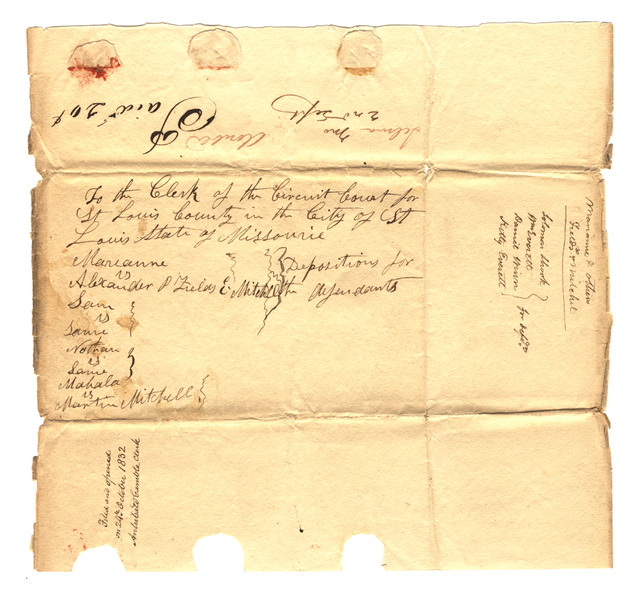 Paid 20¢
Selma Mo
2nd Sept
To the Clerk of the Circuit Court for
St Louis County in the City of St
Louis State of Missourie
Marianne
vs
Alexander P Fields & Mitchell
Depositions for
the defendants
Sam
vs
Same
Nathan
vs
Same
Mahala
vs
Martin Mitchell
Marianne & others
vs
Fields & Mitchel
Solomon Shook
Wm Everett
Daniel Winn
Kitty Everett
for defts
Filed and opened
on 24th October 1832
Archibald Gamble Clerk